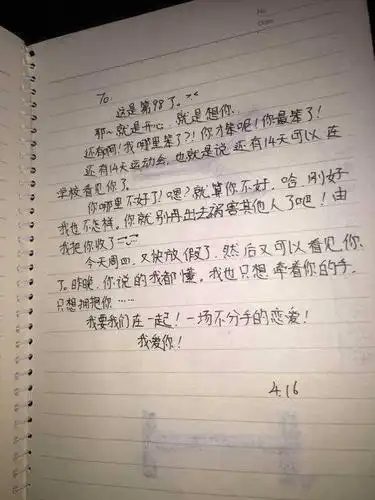 No.
Date
To.
这是第98了。
耶~就是开心,就是想你.
还有啊!我哪里笨了?!你才笨呢!你最笨了!
还有14天运动会.也就是说还有14天可以在
学校看见你了。
你哪里不好了!嗯?就算你不好,哈,刚好
我也不怎样。你就别再出去祸害其他人了吧!由
我把你收了
今天周四.又快放假了.然后又可以看见你
了。昨晚,你说的我都懂。我也只想牵着你的手.
只想拥抱你……
我要我们在一起!一场不分手的恋爱!
我爱你!
4.16